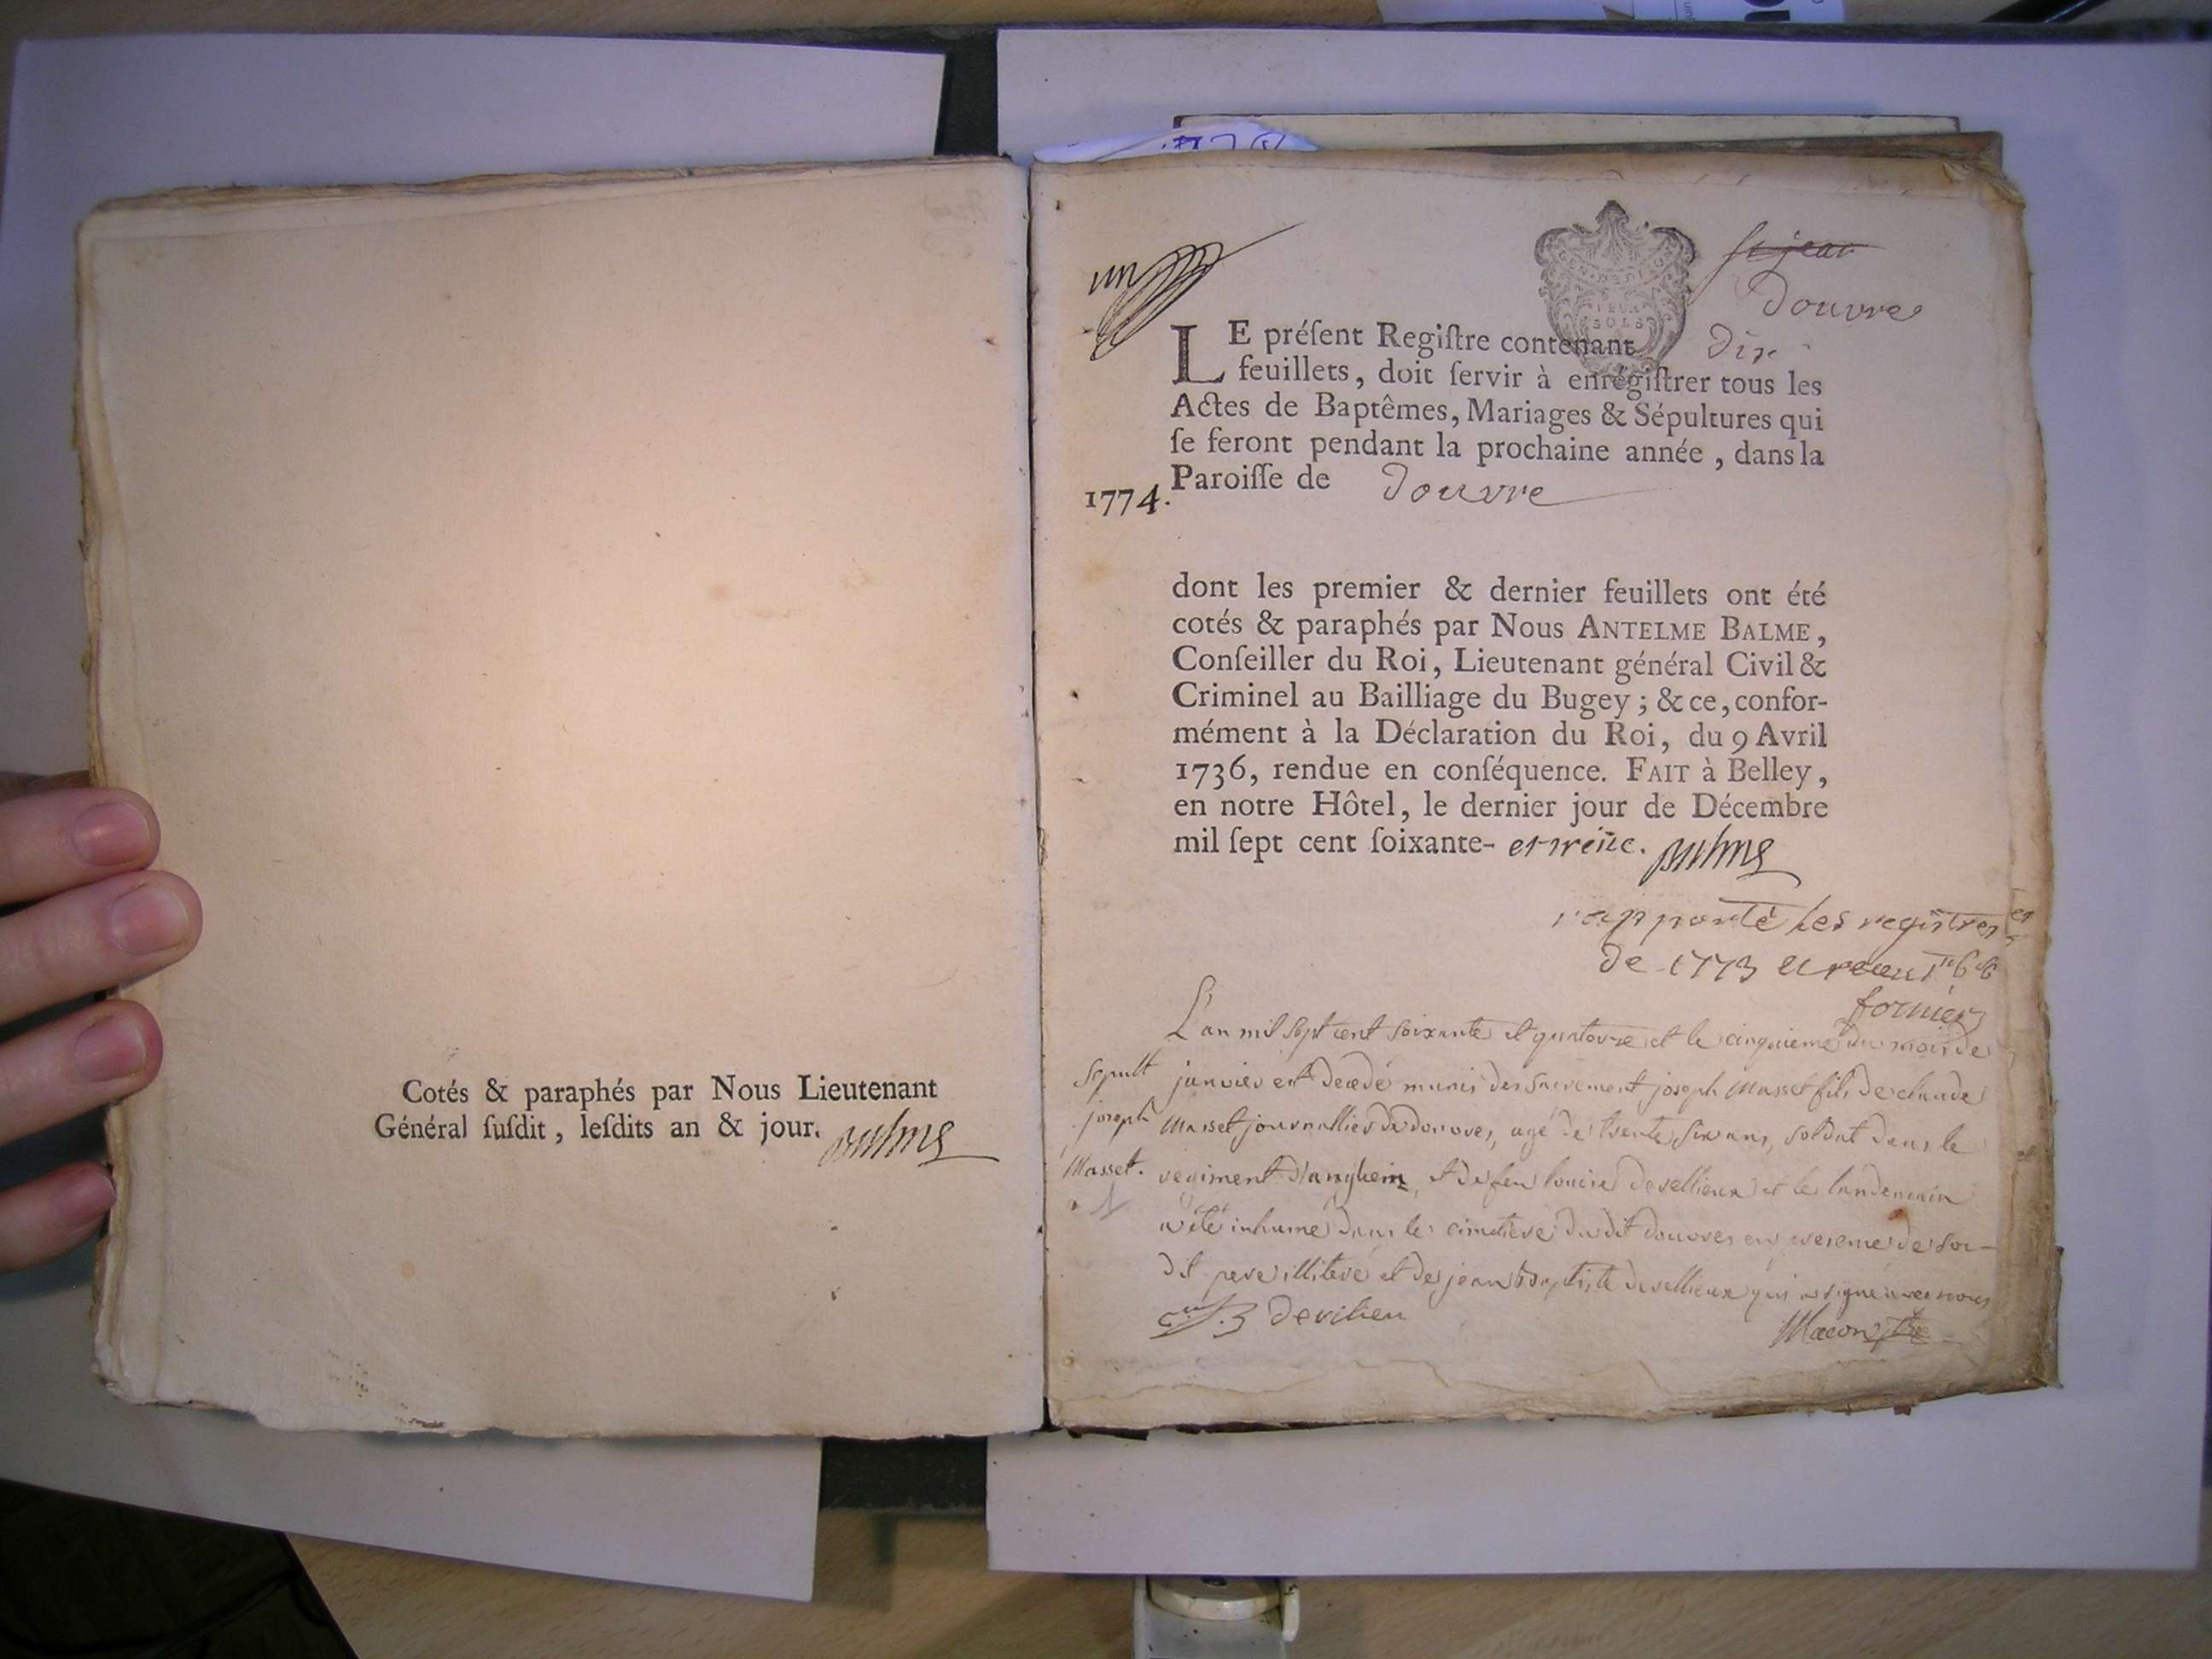 Cotés & paraphés par Nous Lieutenant
Général ſuſdit, leſdits an & jour. Balme
un
st jean
Douvres
LE préſent Regiſtre contenant dix
feuillets, doit ſervir à enrégiſtrer tous les
Actes de Baptêmes, Mariages & Sépultures qui
ſe feront pendant la prochaine année, dans la
Paroiſſe de Douvre
1774.
dont les premier & dernier feuillets ont été
cotés & paraphés par Nous ANTELME BALME,
Conſeiller du Roi, Lieutenant général Civil &
Criminel au Bailliage du Bugey; & ce, confor-
mément à la Déclaration du Roi, du 9 Avril
1736, rendue en conſéquence. FAIT à Belley,
en notre Hôtel, le dernier jour de Décembre
mil ſept cent ſoixante- et treize. Balme
rapporté les registres
de 1773 et receu
fornier
L'an mil sept cent soixante et quatorze et le cinquieme du mois de
janvier est decedé munis des sacrement joseph Masset fils de claude
Masset journallier de douvres, agé de trente six ans, soldat dans le
regiment d'anghein, et de feu louise devellieux et le landemain
a été inhumé dans le cimetiere du dit douvres en presence de son
dit pere illiteré et de jean baptiste devellieux qui a signé avec nous
Sepult
joseph
Masset.
devilieu
Macon